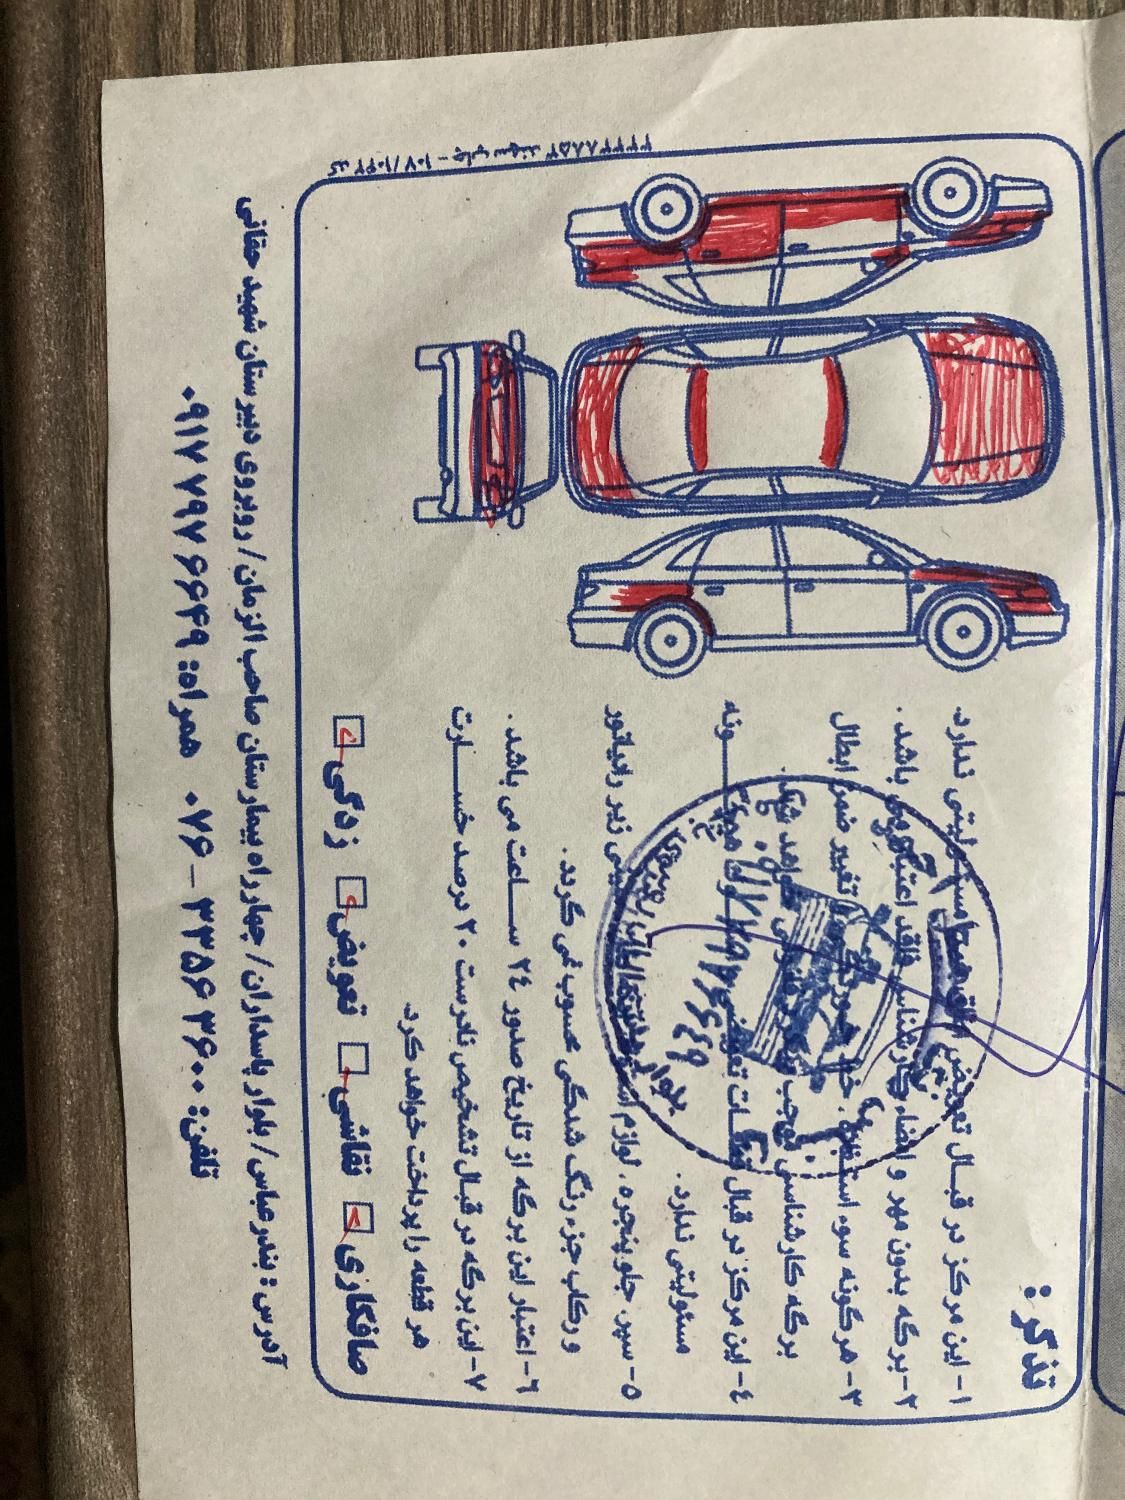 تذکر :
۱- این مرکز در قبال تعویض اتاق هیچ مسئولیتی ندارد.
۲- برگه بدون مهر و امضاء کارشناس فاقد اعتبار می باشد.
۳- هرگونه سوء استفاده، خط خوردگی و تغییر ضمن ابطال
برگه کارشناسی موجب پیگرد قانونی خواهد شد.
۴- این مرکز در قبال قطعات تعویضی هیچگونه
مسئولیتی ندارد.
۵- سپر، جلو پنجره، لوازم زیر رادیاتور
و رکاب جزء رنگ شدگی محسوب نمی گردد.
۶- اعتبار این برگه از تاریخ صدور ۲۴ ساعت می باشد.
۷- این برگه در قبال تشخیص نادرست ۲۰ درصد خسارت
هر قطعه را پرداخت خواهد کرد.
صافکاری نقاشی تعویض زدگی
کد ۱۰۷/۱۰۴۲ - چاپ سهند ۳۲۲۲۸۸۵۲
آدرس : بندرعباس / بلوار پاسداران / چهارراه بیمارستان صاحب الزمان / روبروی دبیرستان شهید حقانی
تلفن: ۳۳۵۶۳۶۰۰ - ۰۷۶ همراه: ۰۹۱۷۷۹۷۶۶۴۹